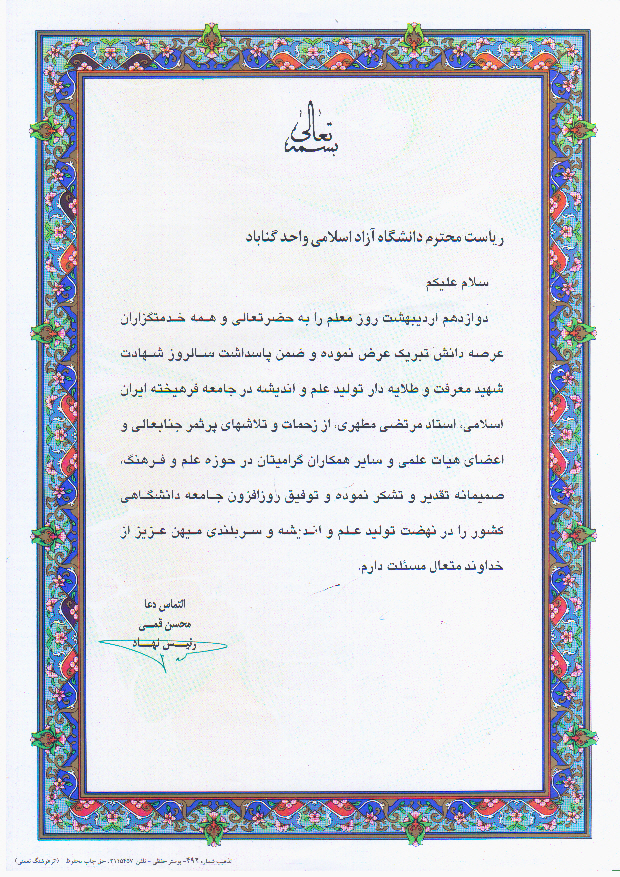 بسمه تعالی
ریاست محترم دانشگاه آزاد اسلامی واحد گناباد
سلام علیکم
دوازدهم اردیبهشت روز معلم را به حضرتعالی و همه خدمتگزاران
عرصه دانش تبریک عرض نموده و ضمن پاسداشت سالروز شهادت
شهید معرفت و طلایه دار تولید علم و اندیشه در جامعه فرهیخته ایران
اسلامی، استاد مرتضی مطهری، از زحمات و تلاشهای پرثمر جنابعالی و
اعضای هیات علمی و سایر همکاران گرامیتان در حوزه علم و فرهنگ،
صمیمانه تقدیر و تشکر نموده و توفیق روزافزون جامعه دانشگاهی
کشور را در نهضت تولید علم و اندیشه و سربلندی میهن عزیز از
خداوند متعال مسئلت دارم.
التماس دعا
محسن قمی
رئیس نهاد
تذهیب شماره ۴۹۲- پوستر حنفی - تلفن ۳۱۱۵۴۵۷، حق چاپ محفوظ